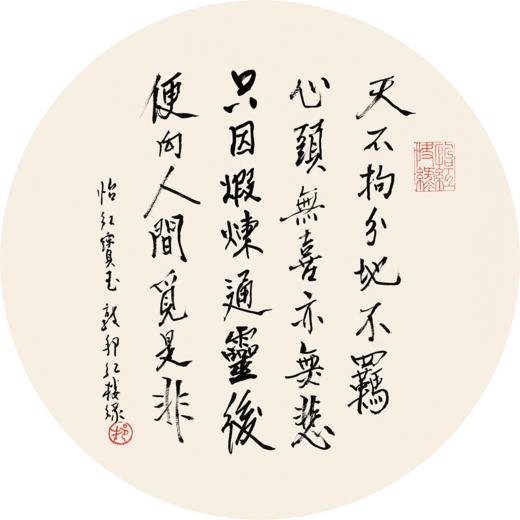 天不拘兮地不羈
心頭無喜亦無悲
只因煅煉通靈後
便向人間覓是非
怡紅寶玉 敦邦紅樓
怡紅
快綠